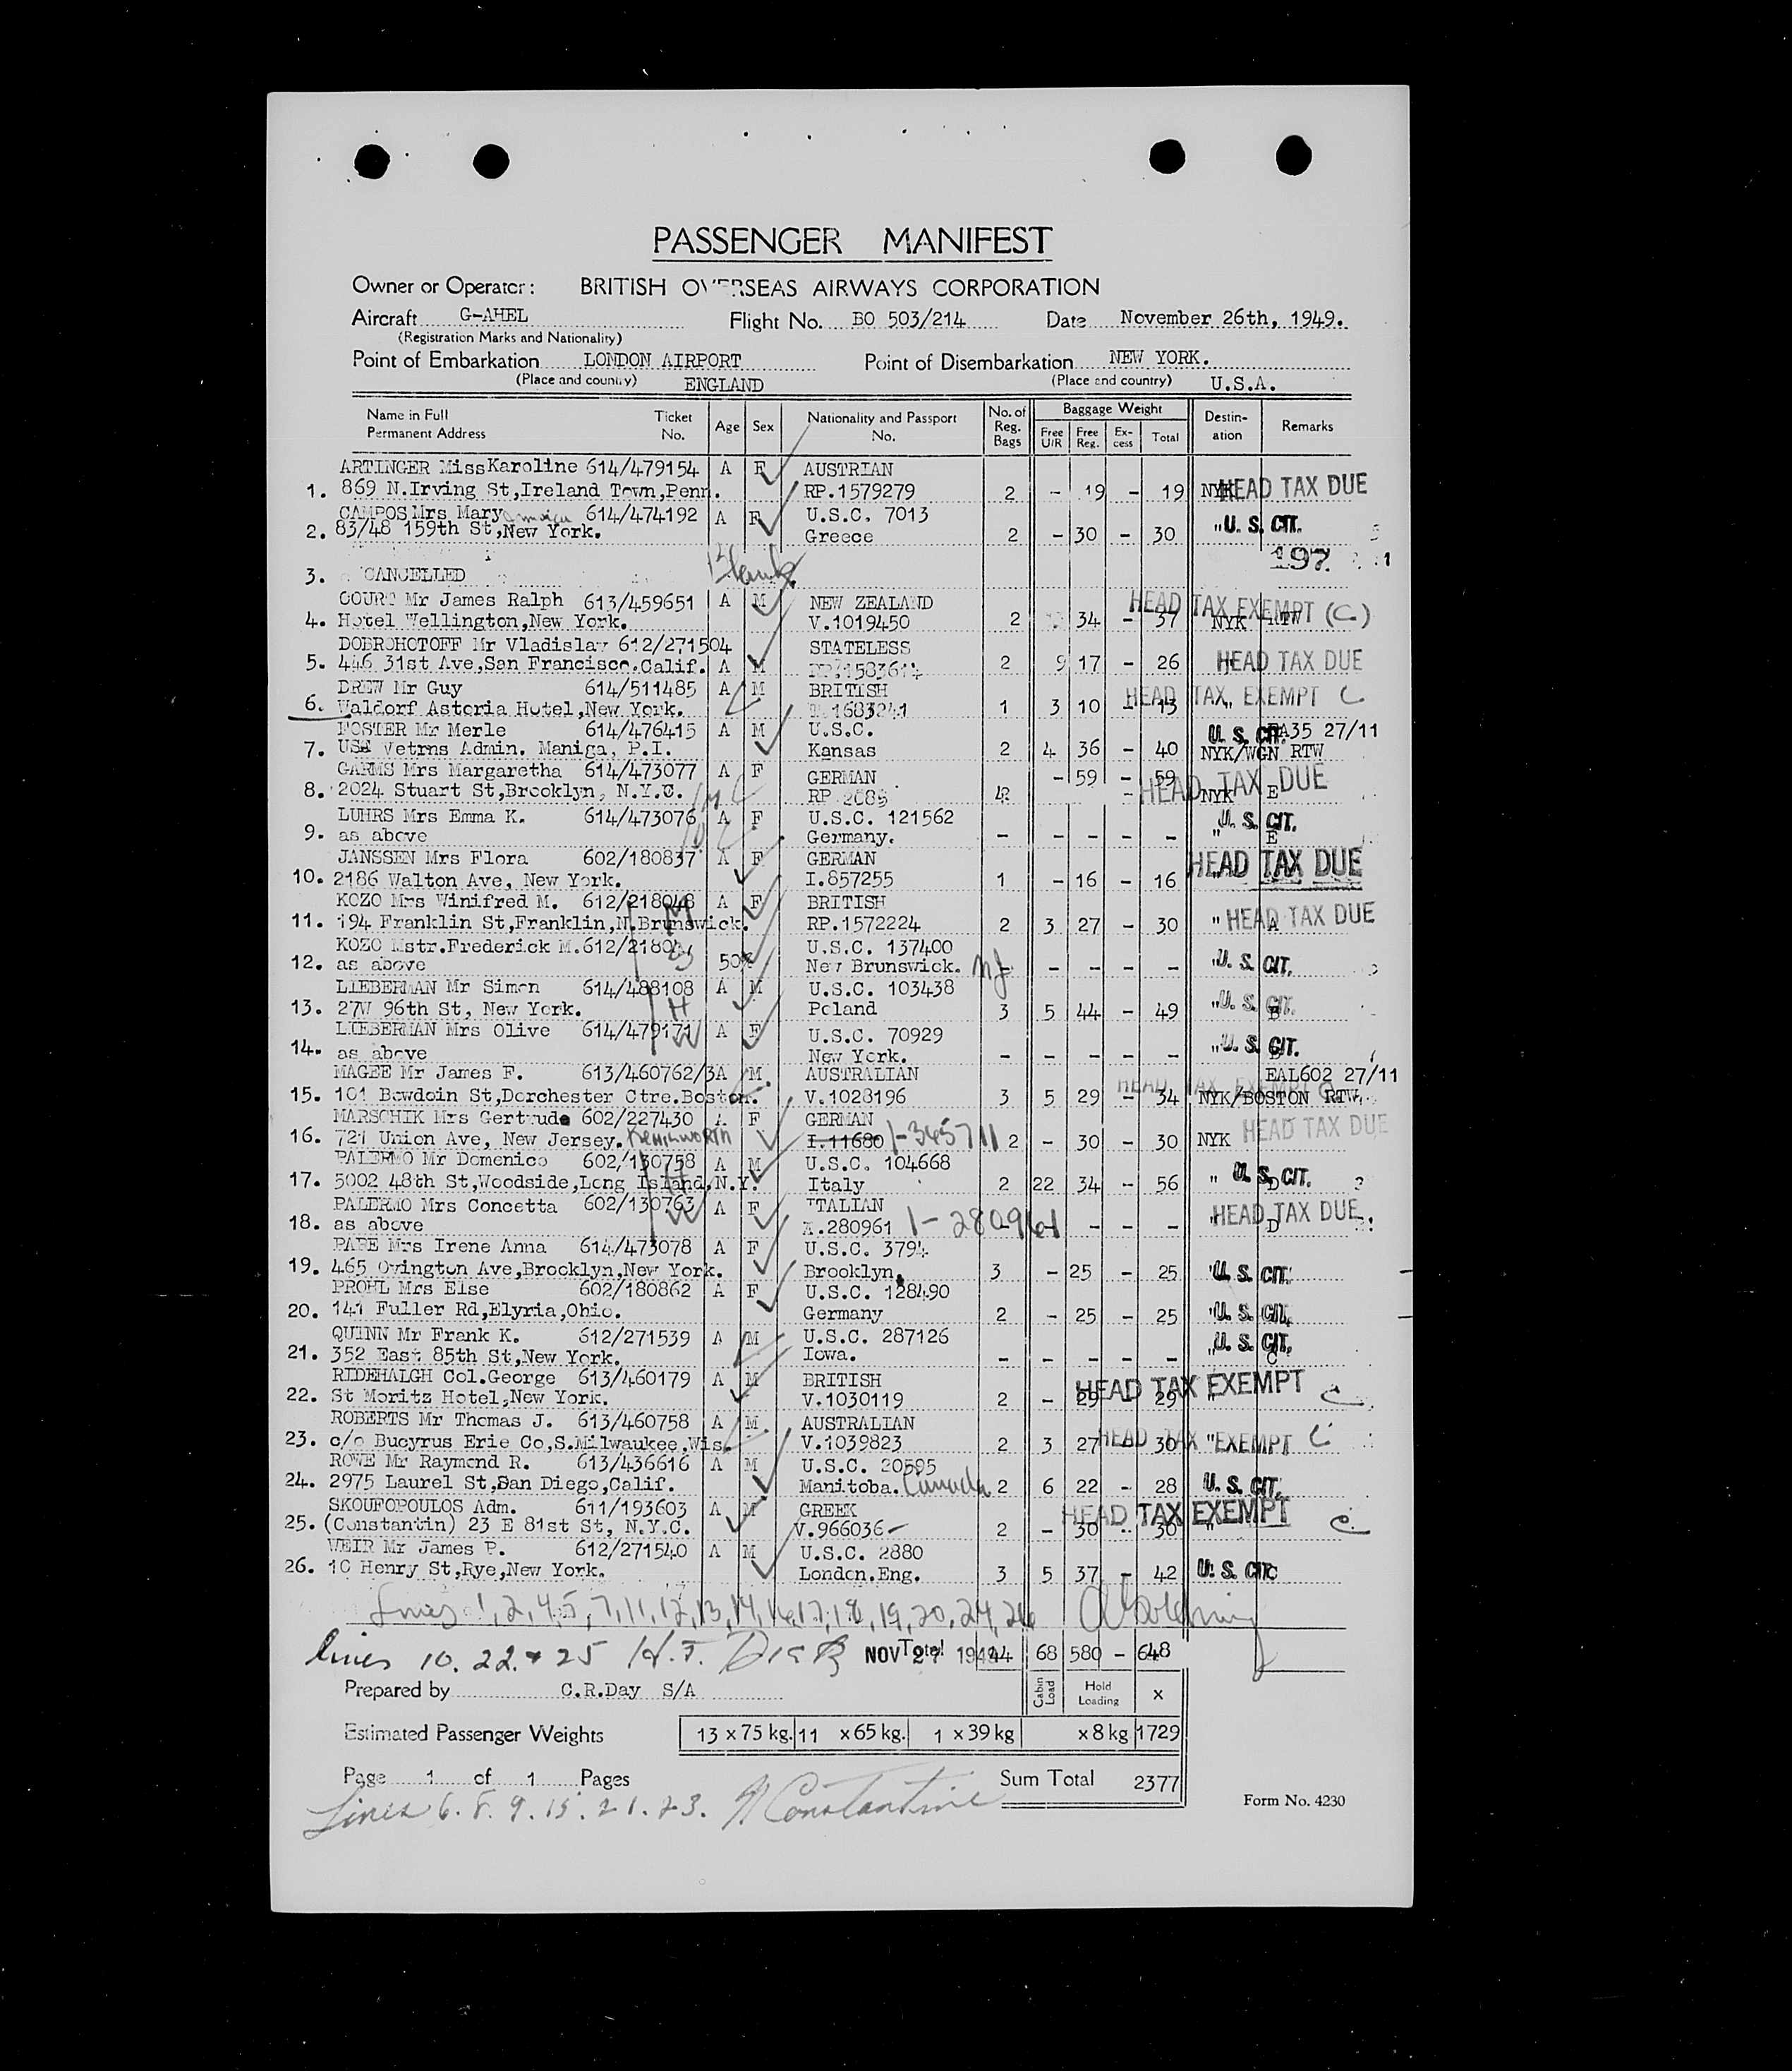 PASSENGER MANIFEST
Owner or Operator: BRITISH OVERSEAS AIRWAYS CORPORATION
Aircraft G-AHEL Flight No. BO 503/214 Date November 26th, 1949.
(Registration Marks and Nationality)
Point of Embarkation LONDON AIRPORT Point of Disembarkation NEW YORK.
(Place and country) ENGLAND (Place and country) U.S.A.
Name in Full Permanent Address Ticket No. Age Sex Nationality and Passport No. No. of Reg. Bags Baggage Weight Free U/R Free Reg. Ex-cess Total Destin-ation Remarks
ARTINGER Miss Karoline 614/479154 A F AUSTRIAN
1. 869 N.Irving St,Ireland Town,Penn. RP.1579279 2 - 19 - 19 NYK HEAD TAX DUE
CAMPOS Mrs Mary 614/474192 A F U.S.C. 7013
2. 83/48 159th St,New York. Greece 2 - 30 - 30 " U. S. CIT.
197
3. CANCELLED Blank
COURT Mr James Ralph 613/459651 A M NEW ZEALAND HEAD TAX EXEMPT (C.)
4. Hotel Wellington,New York. V.1019450 2 34 - 37 NYK RTW
DOBROHOTOFF Mr Vladislav 612/271504 STATELESS
5. 446 31st Ave,San Francisco.Calif. A M 2 9 17 - 26 " HEAD TAX DUE
DREW Mr Guy 614/511485 A M BRITISH HEAD TAX EXEMPT C
6. Waldorf Astoria Hotel,New York. 1683241 1 3 10 - 13 "
FOSTER Mr Merle 614/476415 A M U.S.C. U. S. CIT. 27/11
7. USA Vetrns Admin. Maniga, P.I. Kansas 2 4 36 - 40 NYK/WGN RTW
GARMS Mrs Margaretha 614/473077 A F GERMAN - 59 - 59 HEAD TAX DUE
8. 2024 Stuart St,Brooklyn, N.Y.C. RP 4 - NYK E
LUHRS Mrs Emma K. 614/473076 A F U.S.C. 121562 U. S. CIT.
9. as above Germany. - - - - - " E
JANSSEN Mrs Flora 602/180837 A F GERMAN HEAD TAX DUE
10. 2186 Walton Ave, New York. I.857255 1 - 16 - 16
KOZO Mrs Winifred M. 612/218048 A F BRITISH
11. 194 Franklin St,Franklin,N.Brunswick. RP.1572224 2 3 27 - 30 " HEAD TAX DUE A
KOZO Mstr.Frederick M. U.S.C. 137400
12. as above 50% New Brunswick. NJ - - - - - " U. S. CIT.
LIEBERMAN Mr Simon 614/488108 A M U.S.C. 103438
13. 27W 96th St, New York. H Poland 3 5 44 - 49 " U. S. CIT.
LIEBERMAN Mrs Olive 614/479171 A F U.S.C. 70929
14. as above W New York. - - - - - " U. S. CIT.
MAGEE Mr James F. 613/460762/3A M AUSTRALIAN EAL602 27/11
15. 101 Bowdoin St,Dorchester Ctre.Boston. V.1028196 3 5 29 - 34 NYK/BOSTON RTW. HEAD TAX EXEMPT C
MARSCHIK Mrs Gertrude 602/227430 A F GERMAN
16. 721 Union Ave, New Jersey. KENILWORTH I.11680 I-345711 2 - 30 - 30 NYK HEAD TAX DUE
PALERMO Mr Domenico 602/130758 A M U.S.C. 104668
17. 5002 48th St,Woodside,Long Island.N.Y. Italy 2 22 34 - 56 " U. S. CIT. D
PALERMO Mrs Concetta 602/130763 A F ITALIAN
18. as above W .280961 I-280961 - - - " HEAD TAX DUE. D
PAPE Mrs Irene Anna 614/473078 A F U.S.C. 3794
19. 465 Ovington Ave,Brooklyn,New York. Brooklyn. 3 - 25 - 25 " U. S. CIT.
PROHL Mrs Else 602/180862 A F U.S.C. 128490
20. 141 Fuller Rd,Elyria,Ohio. Germany 2 - 25 - 25 " U. S. CIT.
QUINN Mr Frank K. 612/271539 A M U.S.C. 287126
21. 352 East 85th St,New York. Iowa. - - - - - " U. S. CIT. C
RIDEHALGH Col.George 613/460179 A M BRITISH
22. St Moritz Hotel,New York. V.1030119 2 - 29 - 29 " HEAD TAX EXEMPT C
ROBERTS Mr Thomas J. 613/460758 A M AUSTRALIAN
23. c/o Bucyrus Erie Co,S.Milwaukee,Wis. V.1039823 2 3 27 - 30 " HEAD TAX EXEMPT C
ROWE Mr Raymond R. 613/436616 A M U.S.C. 20595
24. 2975 Laurel St,San Diego,Calif. Manitoba. Canada 2 6 22 - 28 U. S. CIT.
SKOUFOPOULOS Adm. 611/193603 A M GREEK HEAD TAX EXEMPT
25. (Constantin) 23 E 81st St, N.Y.C. V.966036 2 - 30 - 30 " C.
WEIR Mr James P. 612/271540 A M U.S.C. 2880
26. 10 Henry St,Rye,New York. London.Eng. 3 5 37 - 42 U. S. CIT. C
Lines 1,2,4,5,7,11,12,13,14,16,17,18,19,20,24,26
Lines 10.22.+25 NOV 27 1949 Total 44 68 580 - 648
Prepared by C.R.Day S/A Cabin Load Hold Loading x
Estimated Passenger Weights 13 x 75 kg. 11 x 65 kg. 1 x 39 kg x 8 kg 1729
Page 1 of 1 Pages Sum Total 2377
Lines 6.8.9.15.21.23. Constantine
Form No. 4230